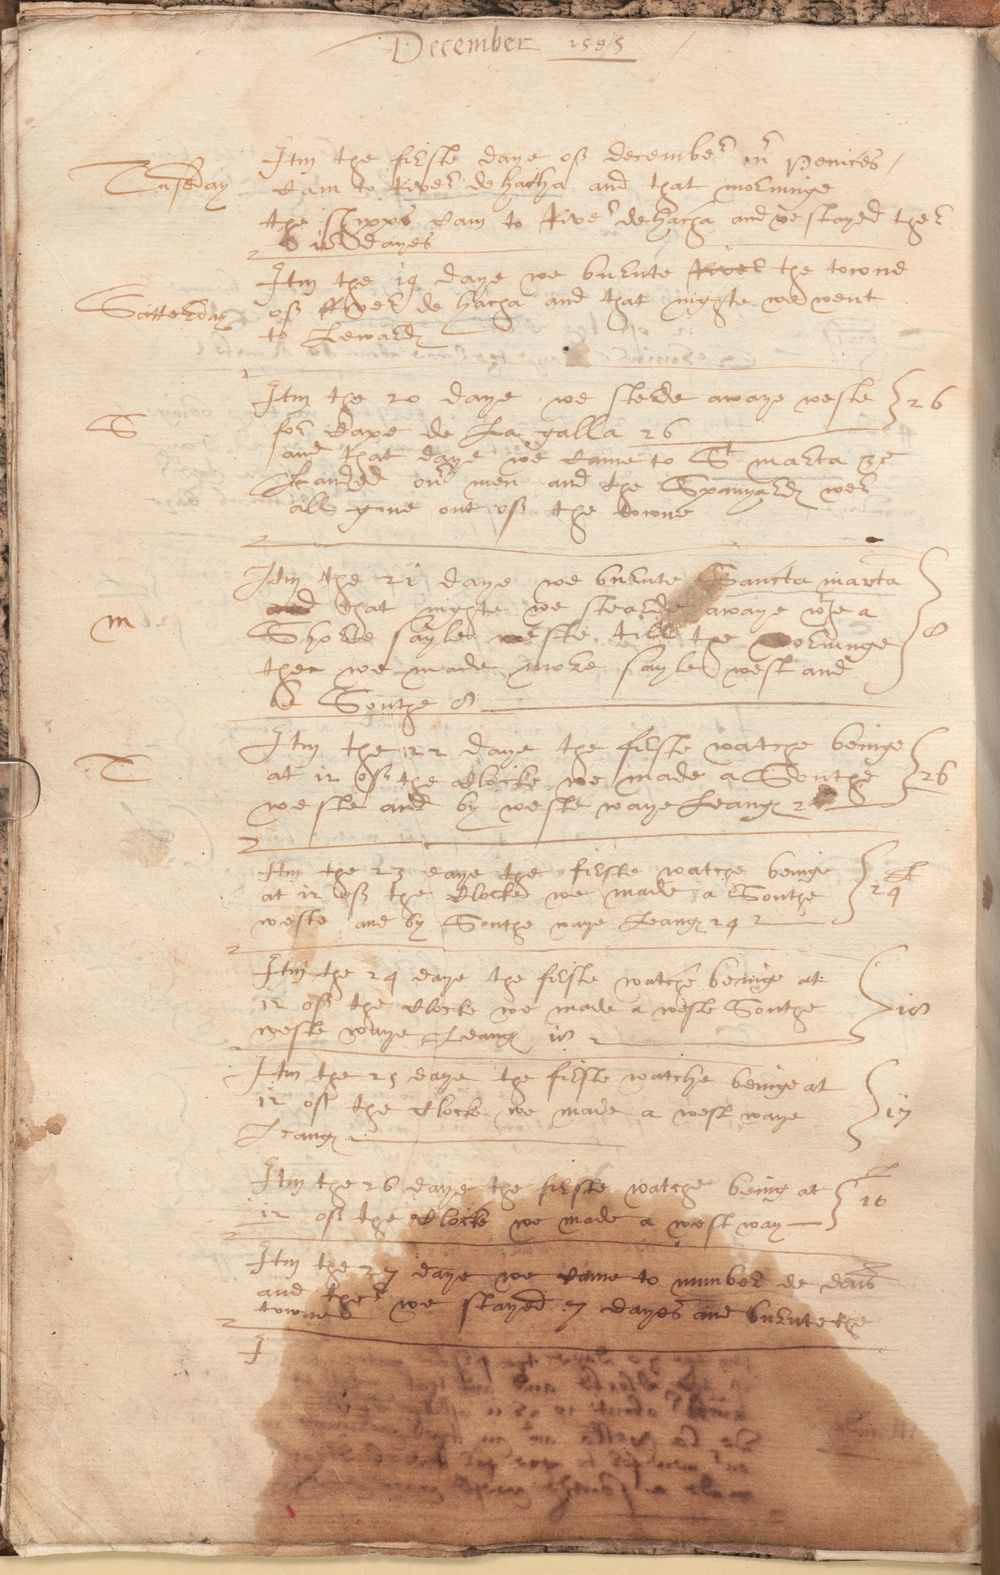 December 1595
Tuseday
Itm the firste daye of december our penices
Cam to River de hacha and that morninge
the shipps Cam to River de hacha and we stayed ther
18 dayes
Satterday
Itm the 19 daye we burnte River the townd
of River de hacha and that nighte we went
to Leward
S
Itm the 20 daye we sterde awaye weste
for Cape de La galla 26
26
and that daye we Came to St marta &
Landed our men and the Spanyards wer
all gone out of the towne
m
Itm the 21 daye we burnte Sancta marta
and that nighte we stearde awaye wth a
Shorte sayle weste till the morninge
then we made more sayle west and
be Southe 8
8
T
Itm the 22 daye the firste watche beinge
at 12 of the Clocke we made a Southe
weste and by weste waye Leaug 26
26
Itm the 23 daye the firste watche beinge
at 12 of the Clocke we made a Southe
weste and by Southe waye Leaug 24
24
Itm the 24 daye the firste watche beinge at
12 of the Clocke we made a weste Southe
weste waye Leaug 18
18
Itm the 25 daye the firste watche beinge at
12 of the Clocke we made a west waye
Leaug
17
Itm the 26 daye the firste watche being at
12 of the Clocke we made a west way
16
Itm the 27 daye we Came to number de deus
and ther we stayed 7 dayes and burnte the
townes
I